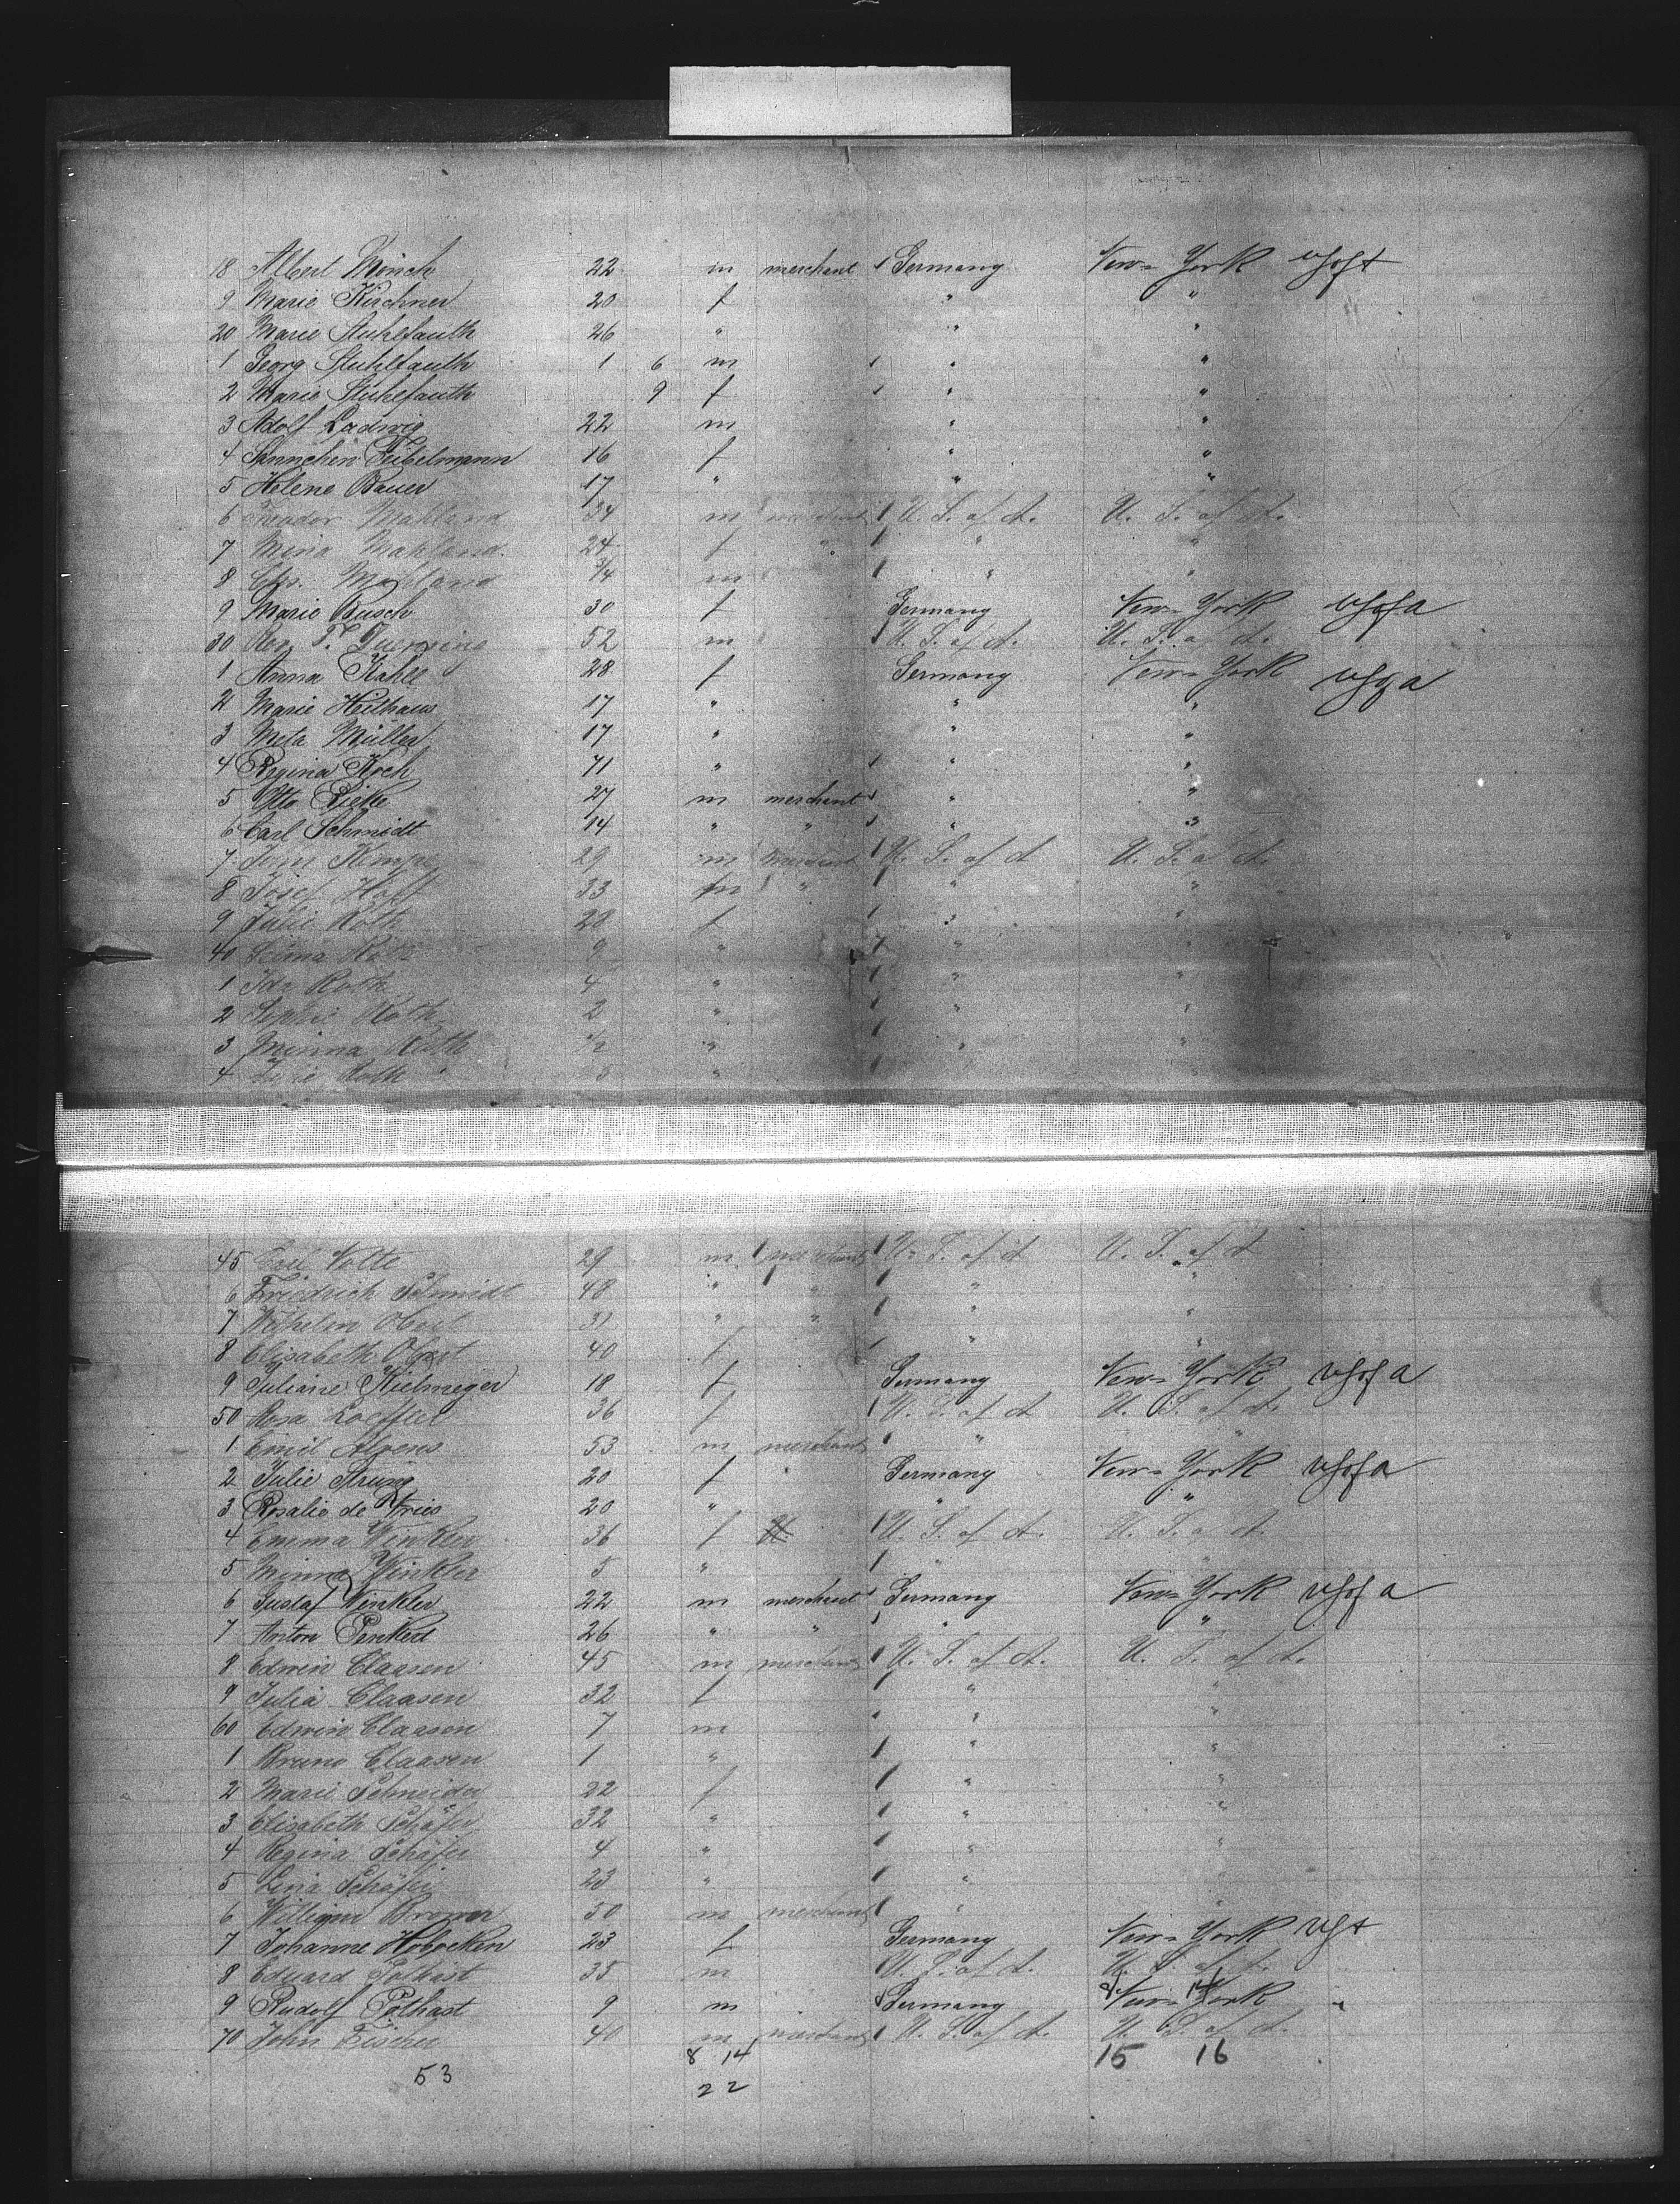 18 Albert Mönch 22 m merchant Germany New-York
9 Marie Kirchner 20 f " "
20 Marie Stuhlfauth 26 " " "
1 Georg Stuhlfauth 1 6 m " "
2 Marie Stuhlfauth 9 f " "
3 Adolf Ladwig 22 m " "
4 Feibelmann 16 f " "
5 Helene Bauer 17 " " "
6 Mahland 34 m merchant U. S. of A. U. S. of A.
7 Mina Mahland 24 f " " "
8 Mahland 3/4 m " "
9 Marie Busch 30 f Germany New-York
30 52 m U. S. of A. U. S. of A.
1 Anna Kahle 28 f Germany New-York
2 Marie Heithaus 17 " " "
3 Meta Müller 17 " " "
4 Regina Koch 71 " " "
5 Otto 27 m merchant " "
6 Carl Schmidt 14 " " " "
7 29 m merchant U. S. of A U. S. of A.
8 Josef Hoff 33 m " " "
9 Julie Roth 28 f " "
40 Selma Roth 9 " " "
1 Ida Roth 4 " " "
2 Sophie Roth 2 " " "
3 Minna Roth 1/2 " " "
4 Roth " "
45 Nolte 29 m merchant U. S. of A U. S. of A
6 Friedrich Schmidt 48 " " " "
7 Wilhelm 31 " " " "
8 Elisabeth 40 f " "
9 Juliane Kielmeyer 18 f Germany New-York
50 Rosa Loeffler 36 f U. S. of A U. S. of A.
1 Emil Ahrens 53 m merchant " "
2 Julie Strung 20 f Germany New-York
3 Rosalie de Vries 20 " " "
4 Emma Winkler 36 f U. S. of A. U. S. of A.
5 Minna Winkler 5 " " "
6 Gustaf Winkler 22 m merchant Germany New-York
7 Anton Penkert 26 " " " "
8 Edwin Claasen 45 m merchant U. S. of A. U. S. of A.
9 Julia Claasen 32 f " "
60 Edwin Claasen 7 m " "
1 Bruno Claasen 1 " " "
2 Marie Schneider 22 f " "
3 Elisabeth Schäfer 32 " " "
4 Regina Schäfer 4 " " "
5 Lina Schäfer 23 " " "
6 William 50 m merchant " "
7 Johanne Hoboeken 23 f Germany New-York
8 Eduard Pothast 35 m U. S. of A. U. S. of A.
9 Rudolf Pothast 9 m Germany New-York "
70 John Fischer 40 m merchant U. S. of A. U. S. of A.
8 14 15 16
53 22